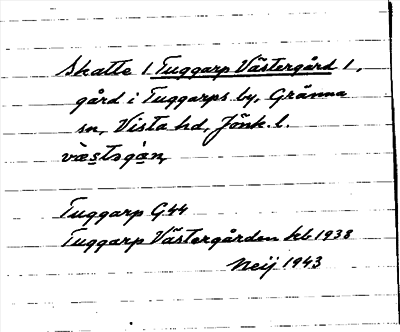 Skatte 1 Tuggarp Västergård 1,
gård i Tuggarps by, Gränna
sn, Vista hd, Jönk. l.
væstəgàn,
Tuggarp G44
Tuggarp Västergården kb 1938
Neij 1943